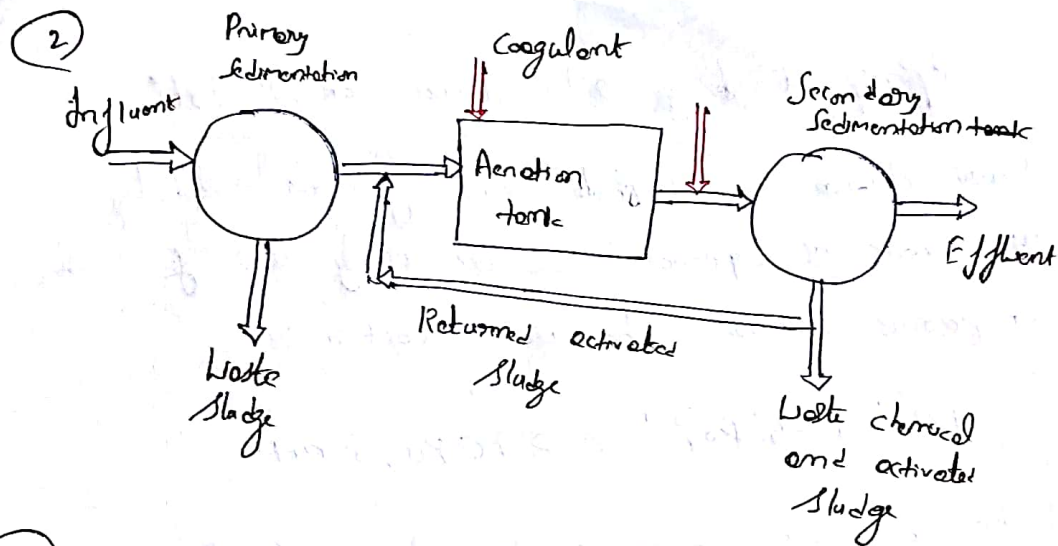 2
Primary
Sedimentation
Coagulant
Influent
Secondary
Sedimentation
Aeration
tank
Effluent
Returned activated
Sludge
Waste
Sludge
Waste chemical
and activated
Sludge